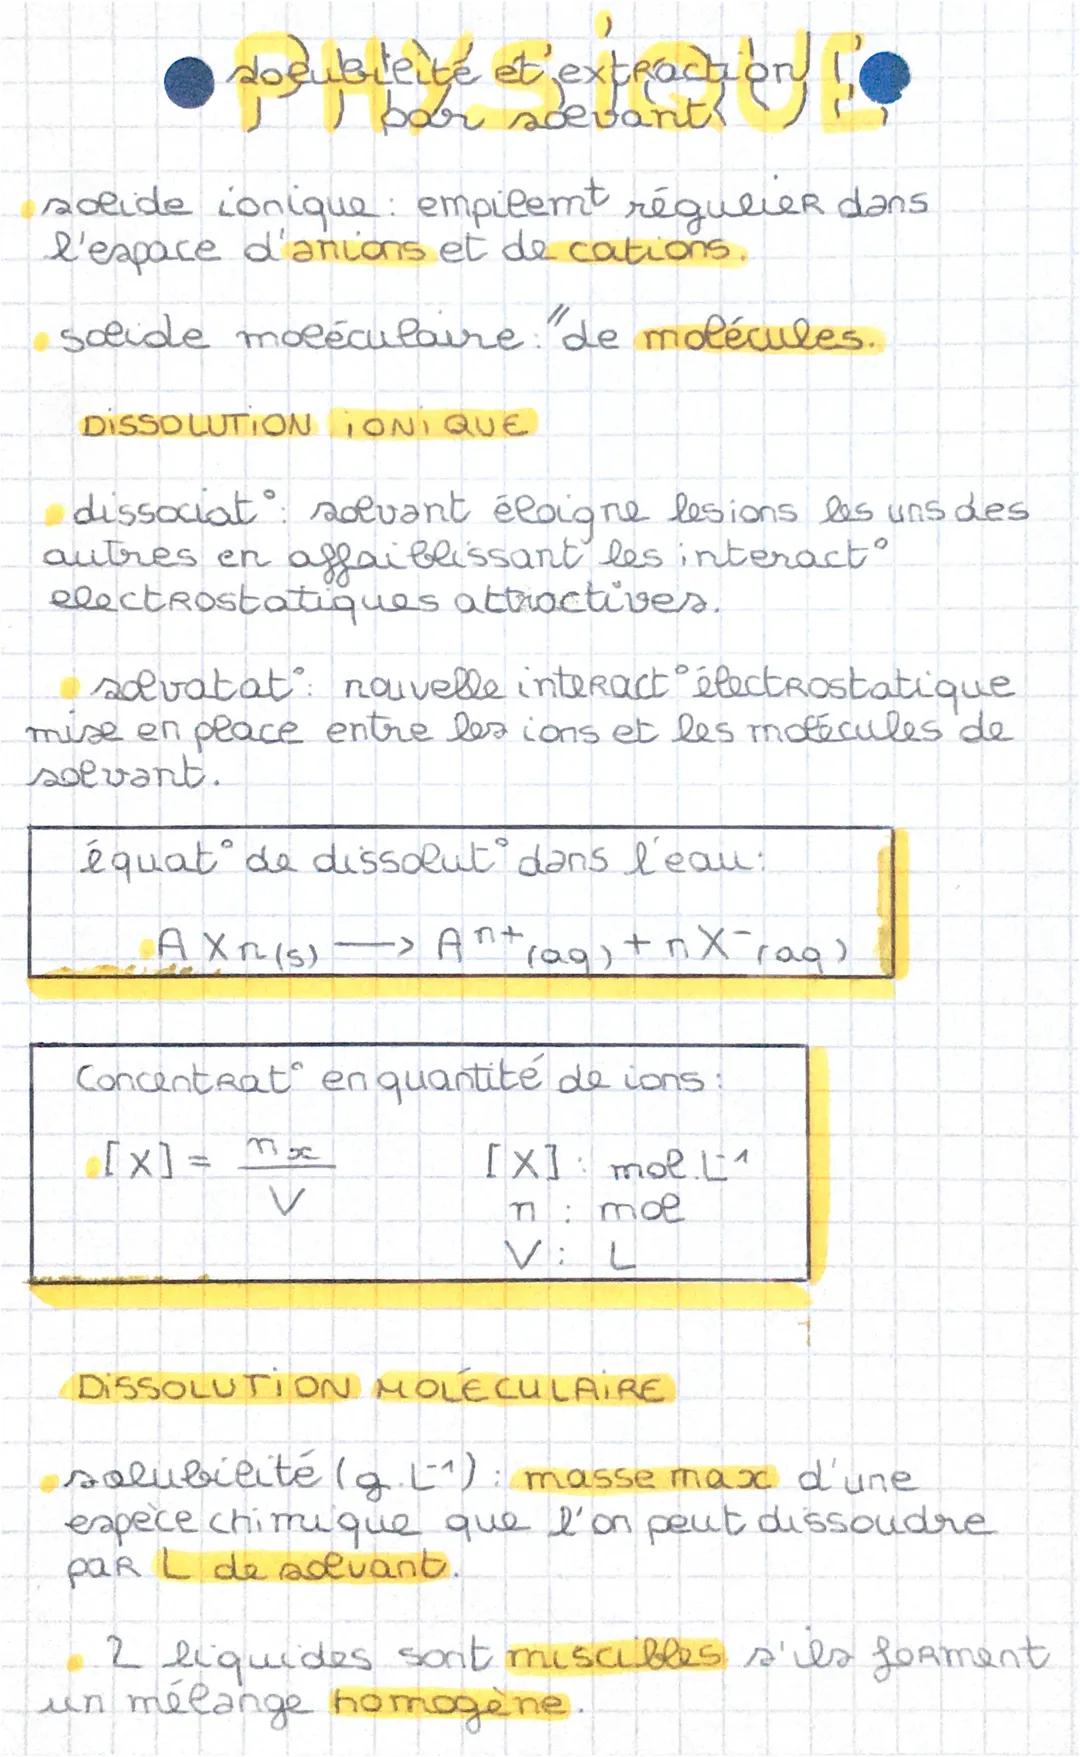 PHYSIQUE
solubilité et extraction
par solvant
solide ionique : empilemt régulier dans
l'espace d'anions et de cations.
solide moléculaire : "de molécules.
DISSOLUTION IONIQUE
dissociat° : solvant éloigne les ions les uns des
autres en affaiblissant les interact°
electrostatiques attractives.
solvatat° : nouvelle interact° électrostatique
mise en place entre les ions et les molécules de
solvant.
équat° de dissolut° dans l'eau :
AXn(s) → Aⁿ⁺(aq) + nX⁻(aq)
Concentrat° en quantité de ions :
[X] = nx / V [X] : mol.L⁻¹
n : mol
V : L
DISSOLUTION MOLÉCULAIRE
solubilité (g.L⁻¹) : masse max d'une
espèce chimique que l'on peut dissoudre
par L de solvant.
2 liquides sont miscibles s'ils forment
un mélange homogène.